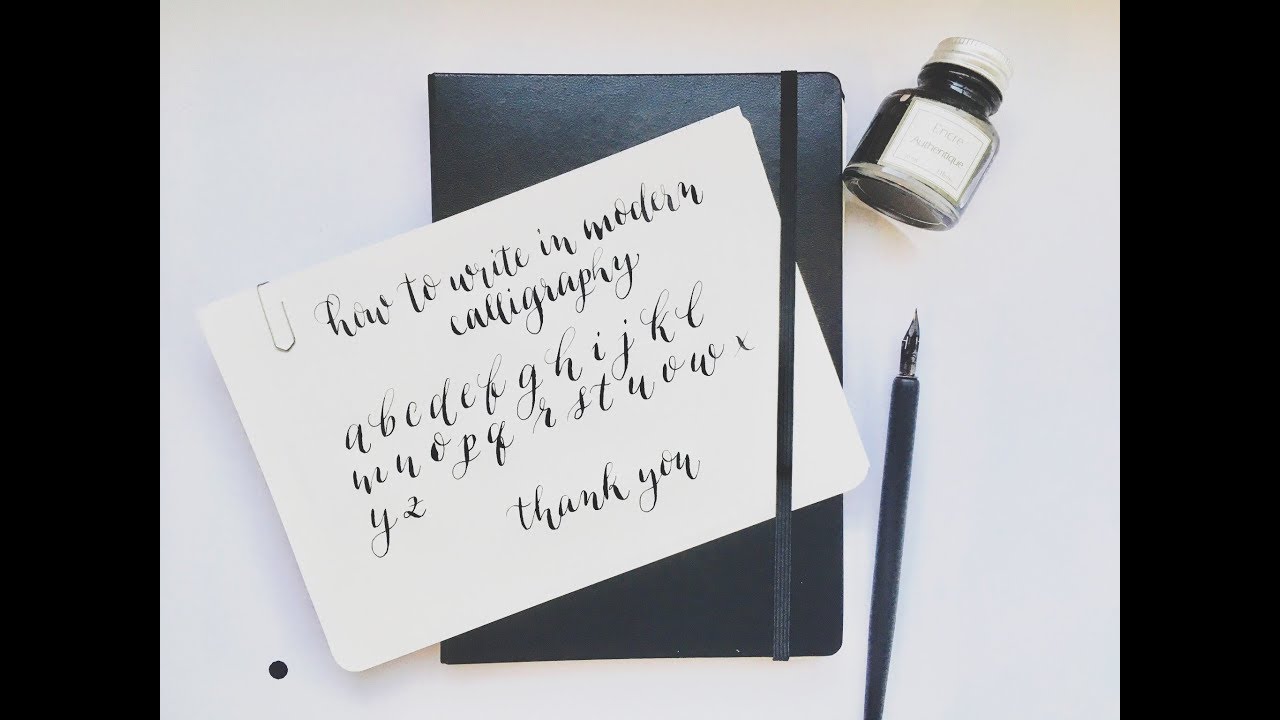 how to write in modern
calligraphy
a b c d e f g h i j k l
m n o p q r s t u v w x
y z
thank you
Encre
Authentique